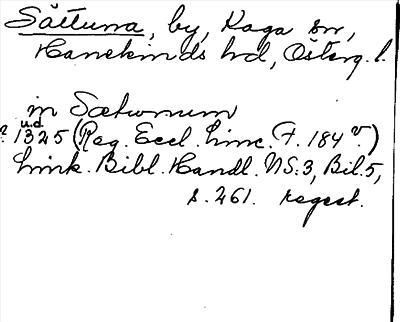 Sättuna, by, Kaga sn,
Hanekinds hd, Österg. l.
in Sætwnum
u.d.
? 1325 (Reg. Eccl. Linc. F. 184 v.)
Link. Bibl. Handl. NS:3, Bil. 5,
s. 261. regest.